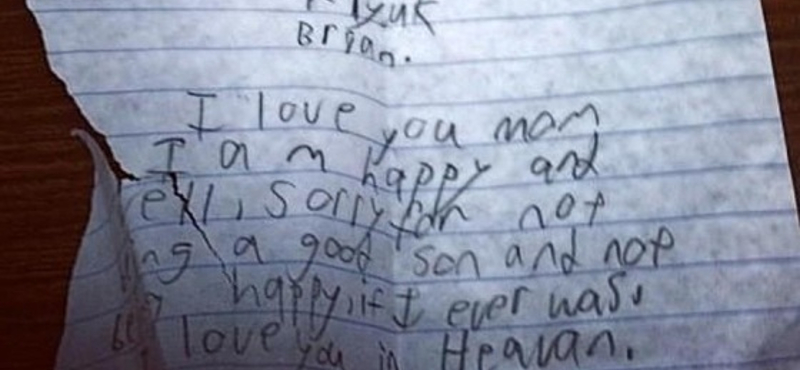 Brian.
I love you mom
I am happy and
ell, sorry for not
ng a good son and not
happy, if I ever was.
love you in Heavan.